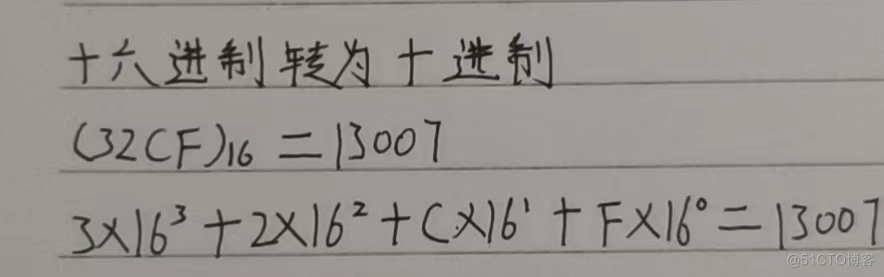 十六进制转为十进制
(32CF)₁₆ = 13007
3×16³ + 2×16² + C×16¹ + F×16⁰ = 13007
@51CTO博客